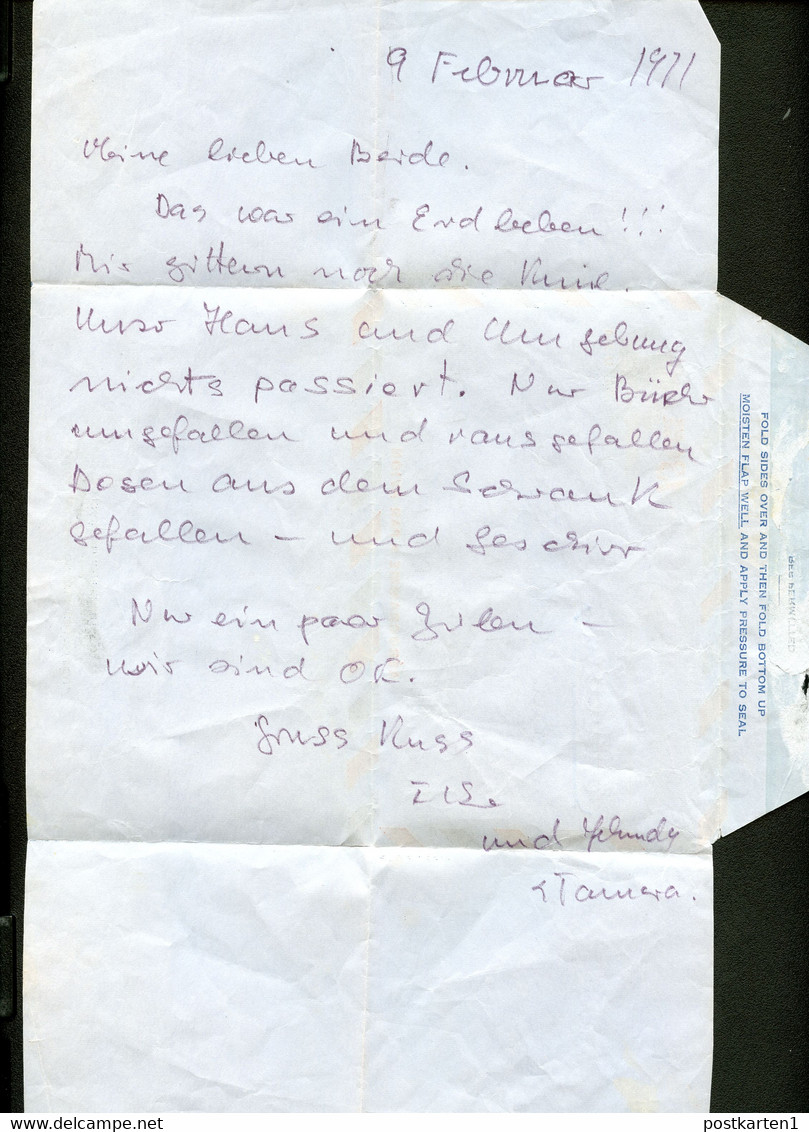 9 Februar 1971
Meine lieben Beide.
Das war ein Erdbeben!!!
Mir zittern noch die Knie.
Unser Haus und Umgebung
nichts passiert. Nur Bücher
umgefallen und rausgefallen
Dosen aus dem Schrank
gefallen – und Geschirr
Nur ein paar Zeilen –
wir sind OK.
Gruss Kuss
Ilse
und Yehudy
& Tamara.
FOLD SIDES OVER AND THEN FOLD BOTTOM UP
MOISTEN FLAP WELL AND APPLY PRESSURE TO SEAL
www.delcampe.net
postkarten1